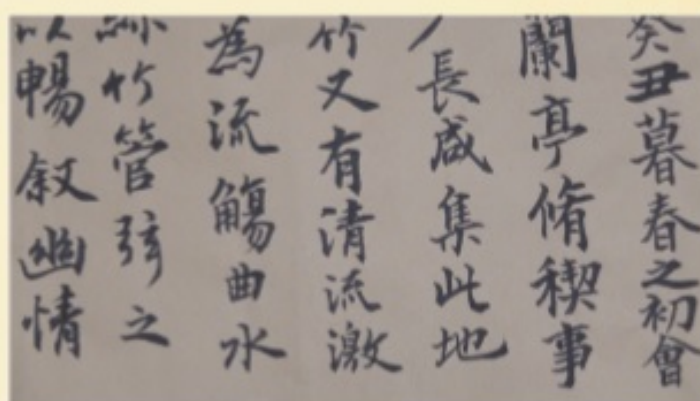 癸丑暮春之初會
蘭亭脩稧事
長咸集此地
竹又有清流激
為流觴曲水
絲竹管弦之
以暢叙幽情